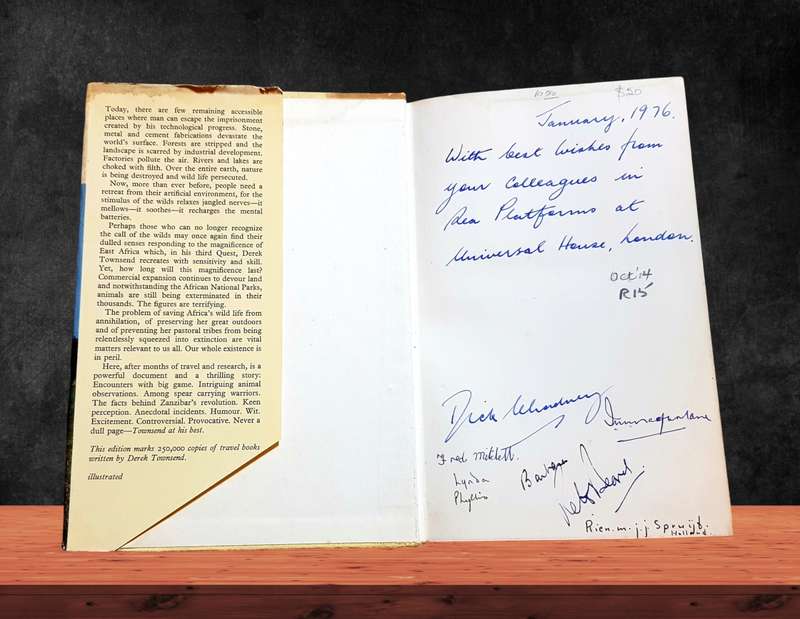 Today, there are few remaining accessible
places where man can escape the imprisonment
created by his technological progress. Stone,
metal and cement fabrications devastate the
world's surface. Forests are stripped and the
landscape is scarred by industrial development.
Factories pollute the air. Rivers and lakes are
choked with filth. Over the entire earth, nature
is being destroyed and wild life persecuted.
Now, more than ever before, people need a
retreat from their artificial environment, for the
stimulus of the wilds relaxes jangled nerves—it
mellows—it soothes—it recharges the mental
batteries.
Perhaps those who can no longer recognize
the call of the wilds may once again find their
dulled senses responding to the magnificence of
East Africa which, in his third Quest, Derek
Townsend recreates with sensitivity and skill.
Yet, how long will this magnificence last?
Commercial expansion continues to devour land
and notwithstanding the African National Parks,
animals are still being exterminated in their
thousands. The figures are terrifying.
The problem of saving Africa's wild life from
annihilation, of preserving her great outdoors
and of preventing her pastoral tribes from being
relentlessly squeezed into extinction are vital
matters relevant to us all. Our whole existence is
in peril.
Here, after months of travel and research, is a
powerful document and a thrilling story:
Encounters with big game. Intriguing animal
observations. Among spear carrying warriors.
The facts behind Zanzibar's revolution. Keen
perception. Anecdotal incidents. Humour. Wit.
Excitement. Controversial. Provocative. Never a
dull page—Townsend at his best.
This edition marks 250,000 copies of travel books
written by Derek Townsend.
illustrated
$20
January, 1976.
With best wishes from
your colleagues in
Sea Platforms at
Universal House, London.
Oct '14
R15
Dick
Fred
Lynda
Phyllis
Barbara
Rien. m. j. j. Spruijt.
Holland.